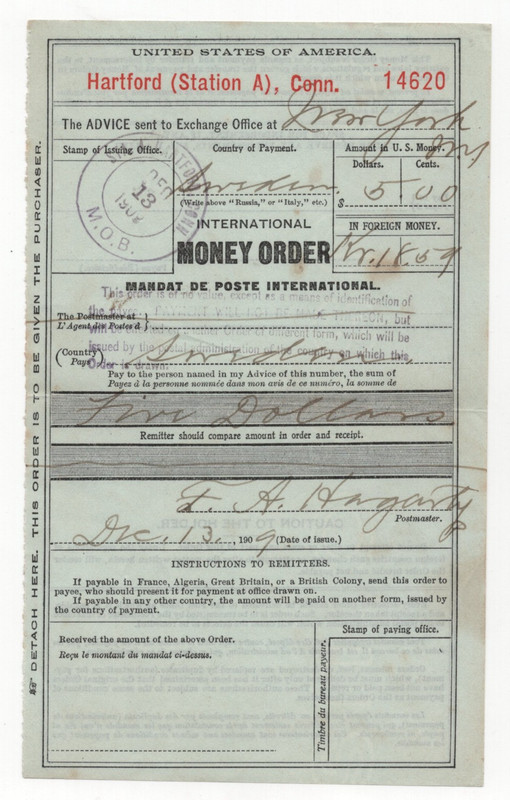 UNITED STATES OF AMERICA.
Hartford (Station A), Conn. 14620
The ADVICE sent to Exchange Office at New York
N.Y.
Stamp of Issuing Office.
Country of Payment.
Amount in U. S. Money.
Dollars. Cents.
Sweden.
$ 5 00
(Write above "Russia," or "Italy," etc.)
STA. A HARTFORD CONN.
DEC
13
1909
M.O.B.
INTERNATIONAL
MONEY ORDER
IN FOREIGN MONEY.
Kr. 18.59
MANDAT DE POSTE INTERNATIONAL.
This order is of no value, except as a means of identification of
the Advice. PAYMENT WILL NOT BE MADE THEREON, but
will be made on another Order of different form, which will be
issued by the postal administration of the country on which this
Order is drawn.
The Postmaster at
L'Agent des Postes d
(Country)
Pays
Sweden.
Pay to the person named in my Advice of this number, the sum of
Payez à la personne nommée dans mon avis de ce numéro, la somme de
Five Dollars
Remitter should compare amount in order and receipt.
F. A. Hagarty
Postmaster.
Dec. 13, 1909. (Date of issue.)
INSTRUCTIONS TO REMITTERS.
If payable in France, Algeria, Great Britain, or a British Colony, send this order to
payee, who should present it for payment at office drawn on.
If payable in any other country, the amount will be paid on another form, issued by
the country of payment.
Received the amount of the above Order.
Reçu le montant du mandat ci-dessus.
Stamp of paying office.
Timbre du bureau payeur.
DETACH HERE. THIS ORDER IS TO BE GIVEN THE PURCHASER.